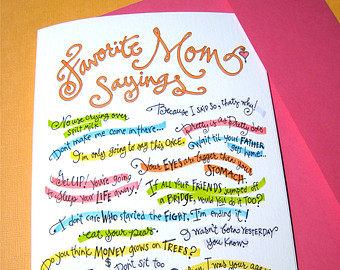 Favorite Mom
Sayings
No use crying over
spilt milk
Because I said so, that's why!
Don't make me come in there...
Pretty is as Pretty does
I'm only going to say this ONCE.
Wait til your FATHER
gets home...
Your EYES are bigger than your
STOMACH.
Get UP! You're going
to sleep your LIFE away!
If all your FRIENDS jumped off
a BRIDGE, would YOU do it TOO?
I don't care WHO started the FIGHT. I'm ending it!
eat your peas.
I wasn't born YESTERDAY
you know.
Do you think MONEY grows on TREES?
$ Don't sit too
I was your age